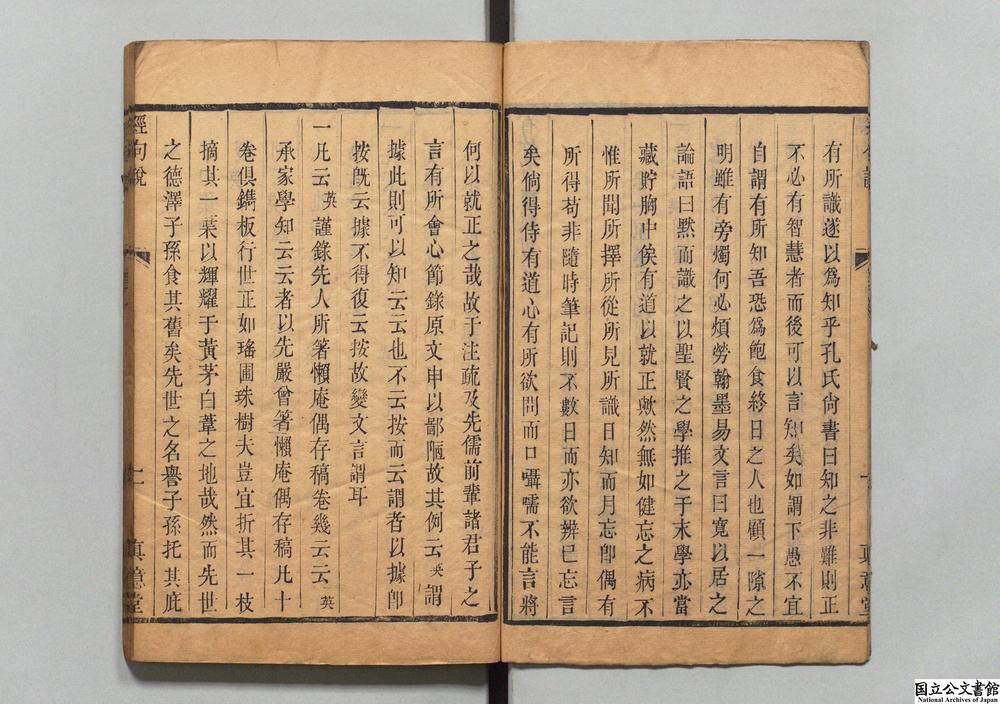 有所識遂以爲知乎孔氏尙書曰知之非難則正
不必有智慧者而後可以言知矣如謂下愚不宜
自謂有所知吾恐爲飽食終日之人也顧一隙之
明雖有旁燭何必煩勞翰墨易文言曰寬以居之
論語曰黙而識之以聖賢之學推之于末學亦當
藏貯胸中俟有道以就正歟然無如健忘之病不
惟所聞所擇所從所見所識日知而月忘卽偶有
所得苟非隨時筆記則不數日而亦欲辨已忘言
矣倘得侍有道心有所欲問而口囁嚅不能言將
何以就正之哉故于注疏及先儒前輩諸君子之
言有所會心節錄原文申以鄙陋故其例云英謂
據此則可以知云云也不云按而云謂者以據卽
按旣云據不得復云按故變文言謂耳
一凡云英謹錄先人所箸懶庵偶存稿卷幾云云英
承家學知云云者以先嚴曾箸懶庵偶存稿凡十
卷俱鐫板行世正如瑤圃珠樹夫豈宜折其一枝
摘其一葉以輝耀于黃茅白葦之地哉然而先世
之德澤子孫食其舊矣先世之名譽子孫托其庇
經句說
眞意堂
国立公文書館
National Archives of Japan